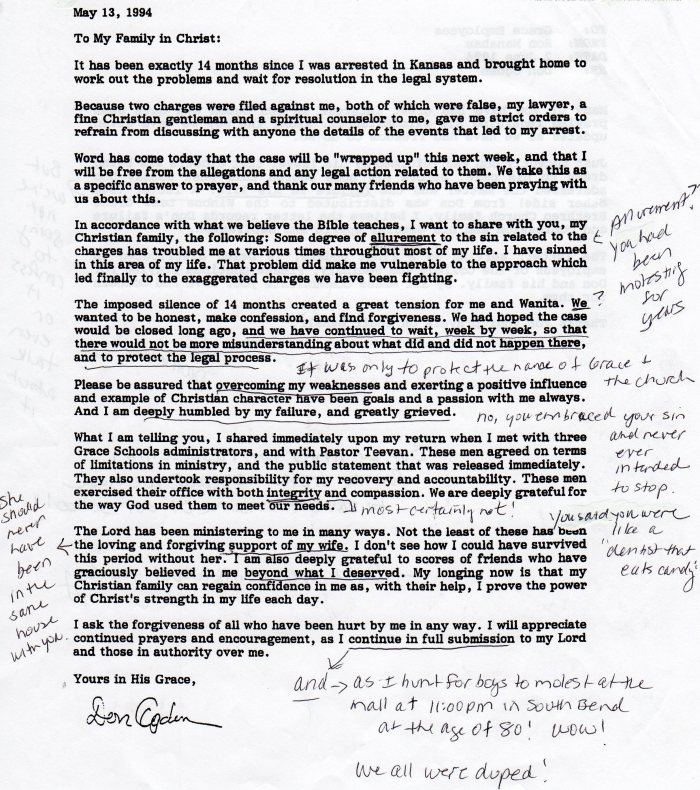 May 13, 1994
To My Family in Christ:
It has been exactly 14 months since I was arrested in Kansas and brought home to
work out the problems and wait for resolution in the legal system.
Because two charges were filed against me, both of which were false, my lawyer, a
fine Christian gentleman and a spiritual counselor to me, gave me strict orders to
refrain from discussing with anyone the details of the events that led to my arrest.
Word has come today that the case will be "wrapped up" this next week, and that I
will be free from the allegations and any legal action related to them. We take this as
a specific answer to prayer, and thank our many friends who have been praying with
us about this.
In accordance with what we believe the Bible teaches, I want to share with you, my
Christian family, the following: Some degree of allurement to the sin related to the
charges has troubled me at various times throughout most of my life. I have sinned
in this area of my life. That problem did make me vulnerable to the approach which
led finally to the exaggerated charges we have been fighting.
Allurement??
you had
been
molesting
for
years
The imposed silence of 14 months created a great tension for me and Wanita. We
?
wanted to be honest, make confession, and find forgiveness. We had hoped the case
would be closed long ago, and we have continued to wait, week by week, so that
there would not be more misunderstanding about what did and did not happen there,
and to protect the legal process.
It was only to protect the name of Grace +
the church
Please be assured that overcoming my weaknesses and exerting a positive influence
and example of Christian character have been goals and a passion with me always.
And I am deeply humbled by my failure, and greatly grieved.
no, you embraced your sin
and never
ever
intended
to stop.
What I am telling you, I shared immediately upon your return when I met with three
Grace Schools administrators, and with Pastor Teevan. These men agreed on terms
of limitations in ministry, and the public statement that was released immediately.
They also undertook responsibility for my recovery and accountability. These men
exercised their office with both integrity and compassion. We are deeply grateful for
the way God used them to meet our needs.
most certainly not!
you said you were
like a
"dentist that
eats candy"
The Lord has been ministering to me in many ways. Not the least of these has been
the loving and forgiving support of my wife. I don't see how I could have survived
this period without her. I am also deeply grateful to scores of friends who have
graciously believed in me beyond what I deserved. My longing now is that my
Christian family can regain confidence in me as, with their help, I prove the power
of Christ's strength in my life each day.
She
should
never
have
been
in the
same
house
with you.
I ask the forgiveness of all who have been hurt by me in any way. I will appreciate
continued prayers and encouragement, as I continue in full submission to my Lord
and those in authority over me.
and → as I hunt for boys to molest at the
mall at 11:00pm in South Bend
at the age of 80! wow!
we all were duped!
Yours in His Grace,
Don Ogden